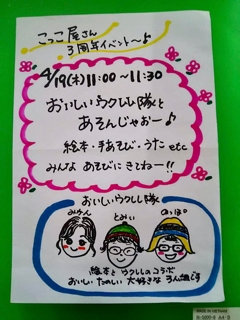 こっこ屋さん
3周年イベント〜♪
4/19(木)11:00〜11:30
おいしいウクレレ隊と
あそんじゃおー♪
絵本・手あそび・うた etc
みんな あそびにきてねー!!
おいしいウクレレ隊
みかん
とみぃ
のっぽ
絵本とウクレレのコラボ
おいしい たのしい 大好きな 3人組です